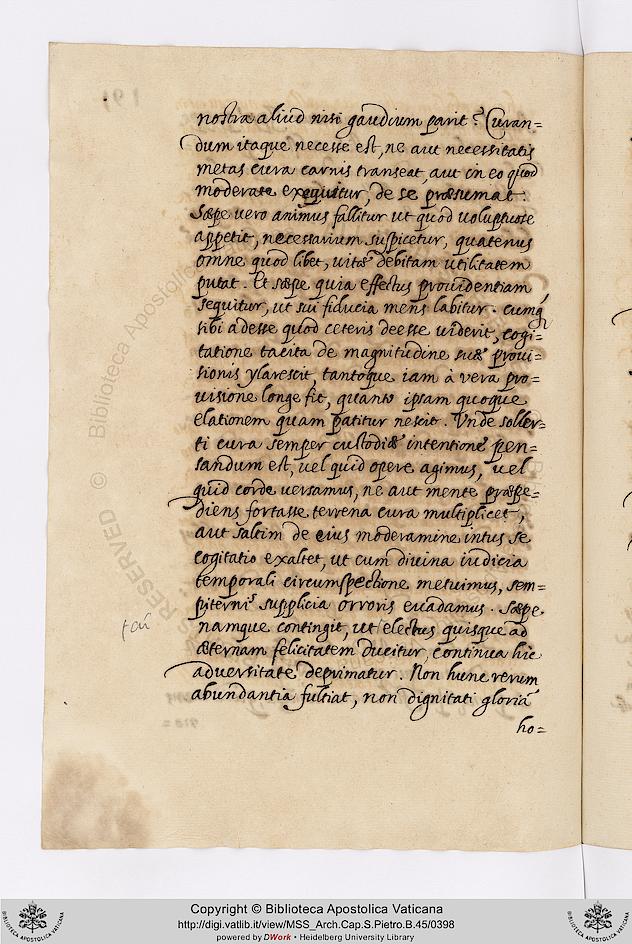 nostra aliud nisi gaudium parit? Curan=
dum itaque necesse est, ne aut necessitatis
metas cura carnis transeat, aut in eo quod
moderate exequitur, de se præsumat.
Sæpe vero animus fallitur ut quod voluptuose
appetit, necessarium suspicetur, quatenus
omne quod libet, vitæ debitam utilitatem
putat. Et sæpe quia effectus providentiam
sequitur, ut sui fiducia mens labitur. cumq́
sibi adesse quod ceteris deesse viderit, cogi-
tatione tacita de magnitudine suæ provi-
sionis ylarescit, tantoque iam à vera pro=
visione longe fit, quanto ipsam quoque
elationem quam patitur nescit. Unde soller-
ti cura semper custodiæ intentione pen-
sandum est, vel quid opere agimus, vel
quid corde versamus, ne aut mente præpe-
diens fortasse terrena cura multiplicet,
aut saltim de eius moderamine intus se
cogitatio exaltet, ut cum divina iudicia
temporali circumspectione metuimus, sem-
piterni supplicia orroris evadamus. Sæpe
namque contingit, ut electus quisque ad
æternam felicitatem ducitur, continua hic
adversitate deprimatur. Non hunc rerum
abundantia fultiat, non dignitati gloriã
ho=
RESERVED © Biblioteca Apostolica
Copyright © Biblioteca Apostolica Vaticana
http://digi.vatlib.it/view/MSS_Arch.Cap.S.Pietro.B.45/0398
powered by DWork • Heidelberg University Library